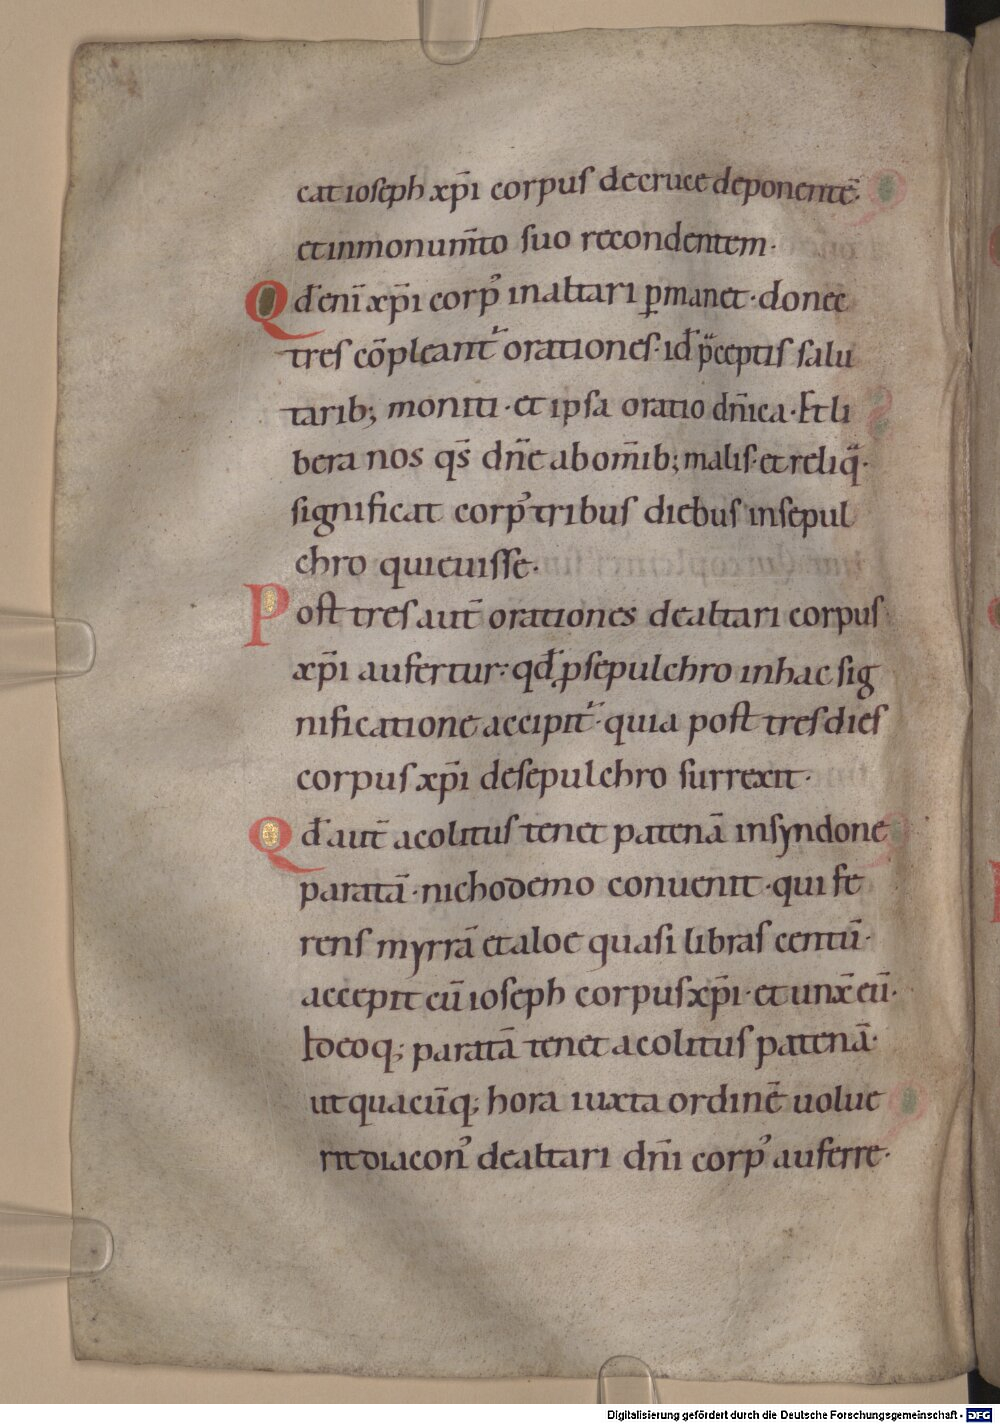 cat ioseph xp̄i corpus decruce deponentē·
et inmonum̄to suo recondentem·
Qđ eni̅ xp̄i corpꝰ inaltari ꝑmanet · donec
tres co̅pleant᷑ orationes · iđ p̈ceptis salu
tarib; moniti · et ipsa oratio dn̄ica · Et li
bera nos qs̄ dn̄e abom̄ib; malis · et reliq̈·
significat corpꝰ tribus diebus insepul
chro quieuisse·
Post tres aut̄ orationes dealtari corpus
xp̄i aufertur· qđ ꝑsepulchro inhac sig
nificatione accipit᷑ · quia post tres dies
corpus xp̄i desepulchro surrexit·
Qđ aut̄ acolitus tenet patenā insyndone
paratā · nichodemo conuenit · qui fe
rens myrrā et aloe quasi libras centū·
accepit cū ioseph corpus xp̄i · et unx̄ eū·
Ideoq; paratā tenet acolitus patenā·
ut quacūq; hora iuxta ordinē uolue
rit diaconꝰ dealtari dn̄i corpꝰ auferre·
Digitalisierung gefördert durch die Deutsche Forschungsgemeinschaft - DFG